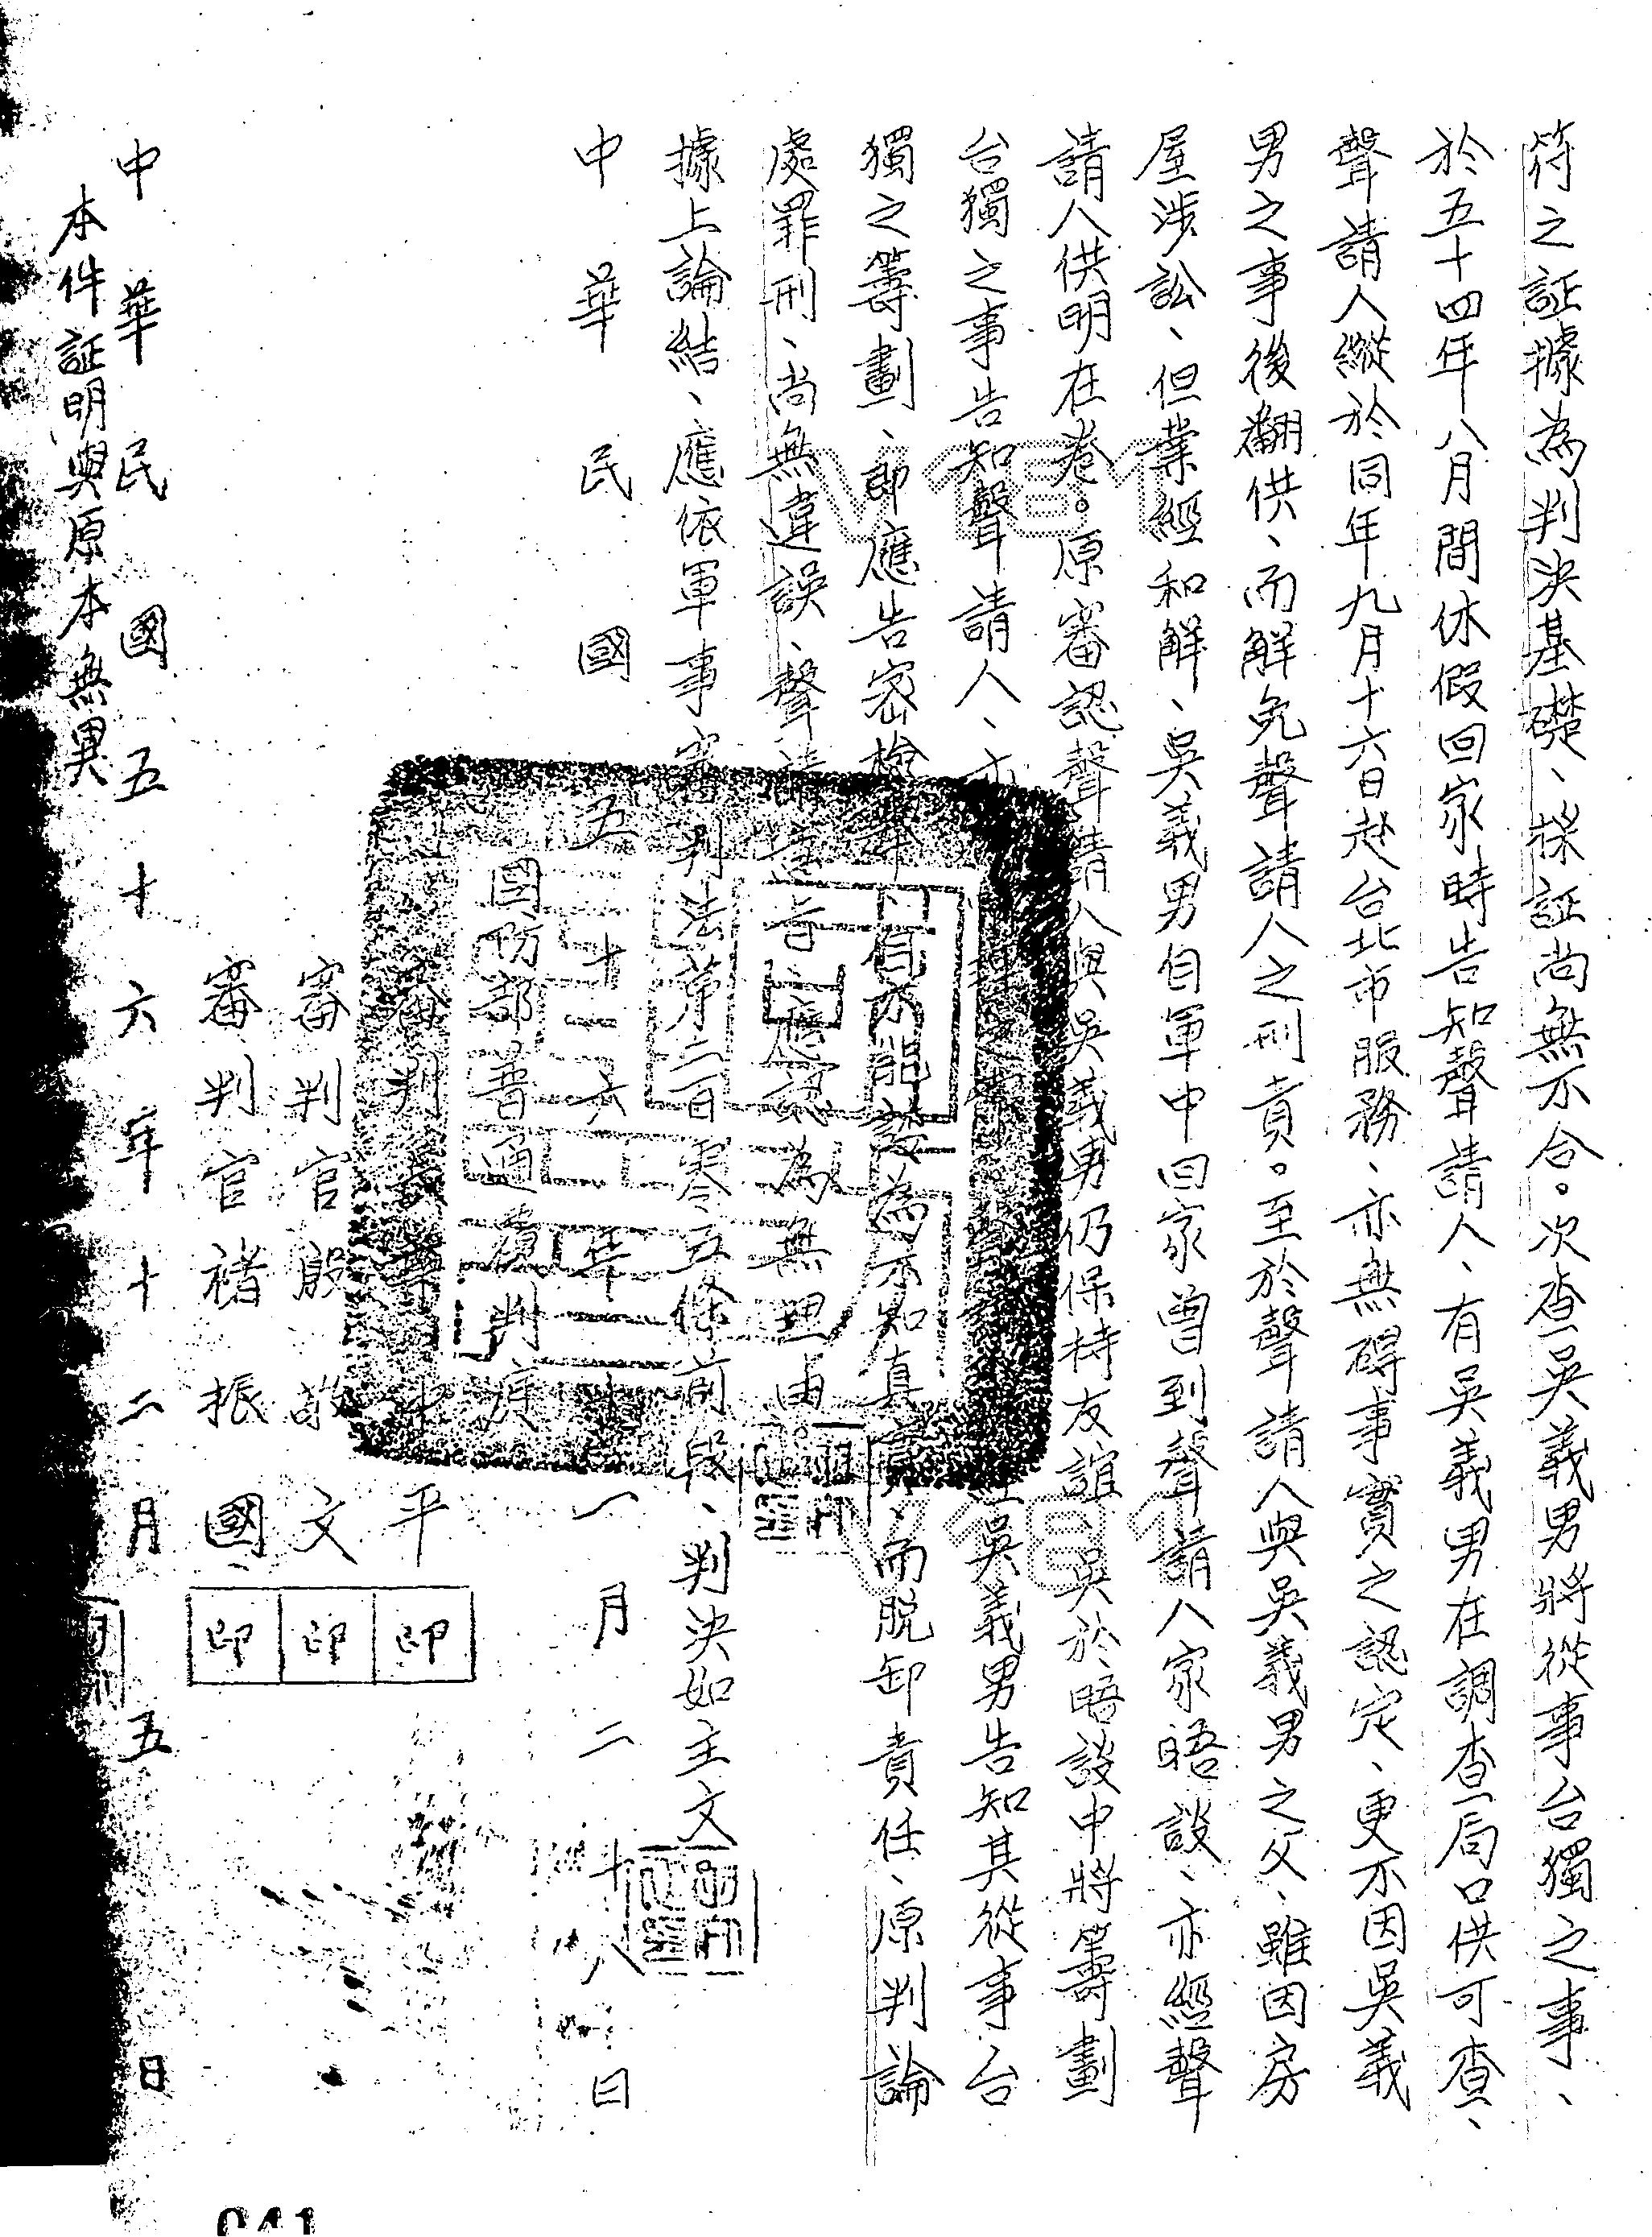 符之証據為判決基礎、採証尚無不合。次查吳義男將從事台獨之事、
於五十四年八月間休假回家時告知聲請人、有吳義男在調查局口供可查、
聲請人縱於同年九月十六日赴台北市服務、亦無碍事實之認定、更不因吳義
男之事後翻供、而解免聲請人之刑責。至於聲請人與吳義男之父、雖因房
屋涉訟、但業經和解、吳義男自軍中回家曾到聲請人家晤談、亦經聲
請人供明在卷。原審認聲請人與吳義男仍保持友誼、吳於晤談中將籌劃
台獨之事告知聲請人、亦 吳義男告知其從事台
獨之籌劃、即應告密檢舉、自不能諉為不知真實、而脫卸責任、原判論
處罪刑、尚無違誤、聲請意旨應認為無理由。
據上論結、應依軍事審判法第二百零五條前段、判決如主文
中華民國五十六年十一月二十八日
國防部普通覆判庭
審判長 平
審判官殷敬文
審判官褚振國
印
印
印
中華民國五十六年十二月五日
本件証明與原本無異
041